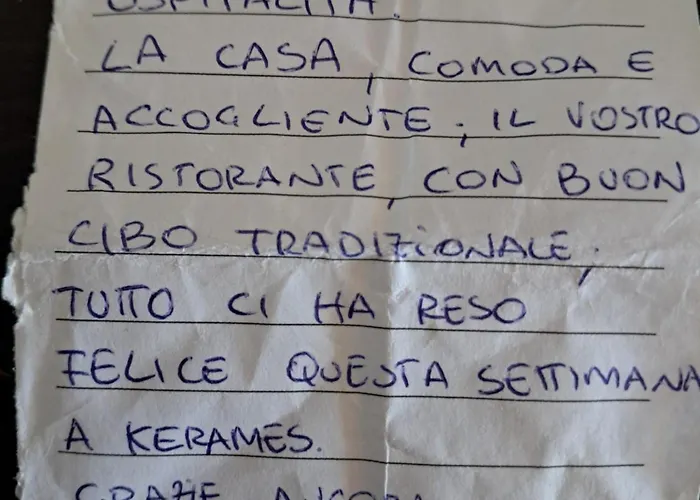 OSPITALITÀ.
LA CASA, COMODA E
ACCOGLIENTE; IL VOSTRO
RISTORANTE, CON BUON
CIBO TRADIZIONALE;
TUTTO CI HA RESO
FELICE QUESTA SETTIMANA
A KERAMES.
GRAZIE ANCORA